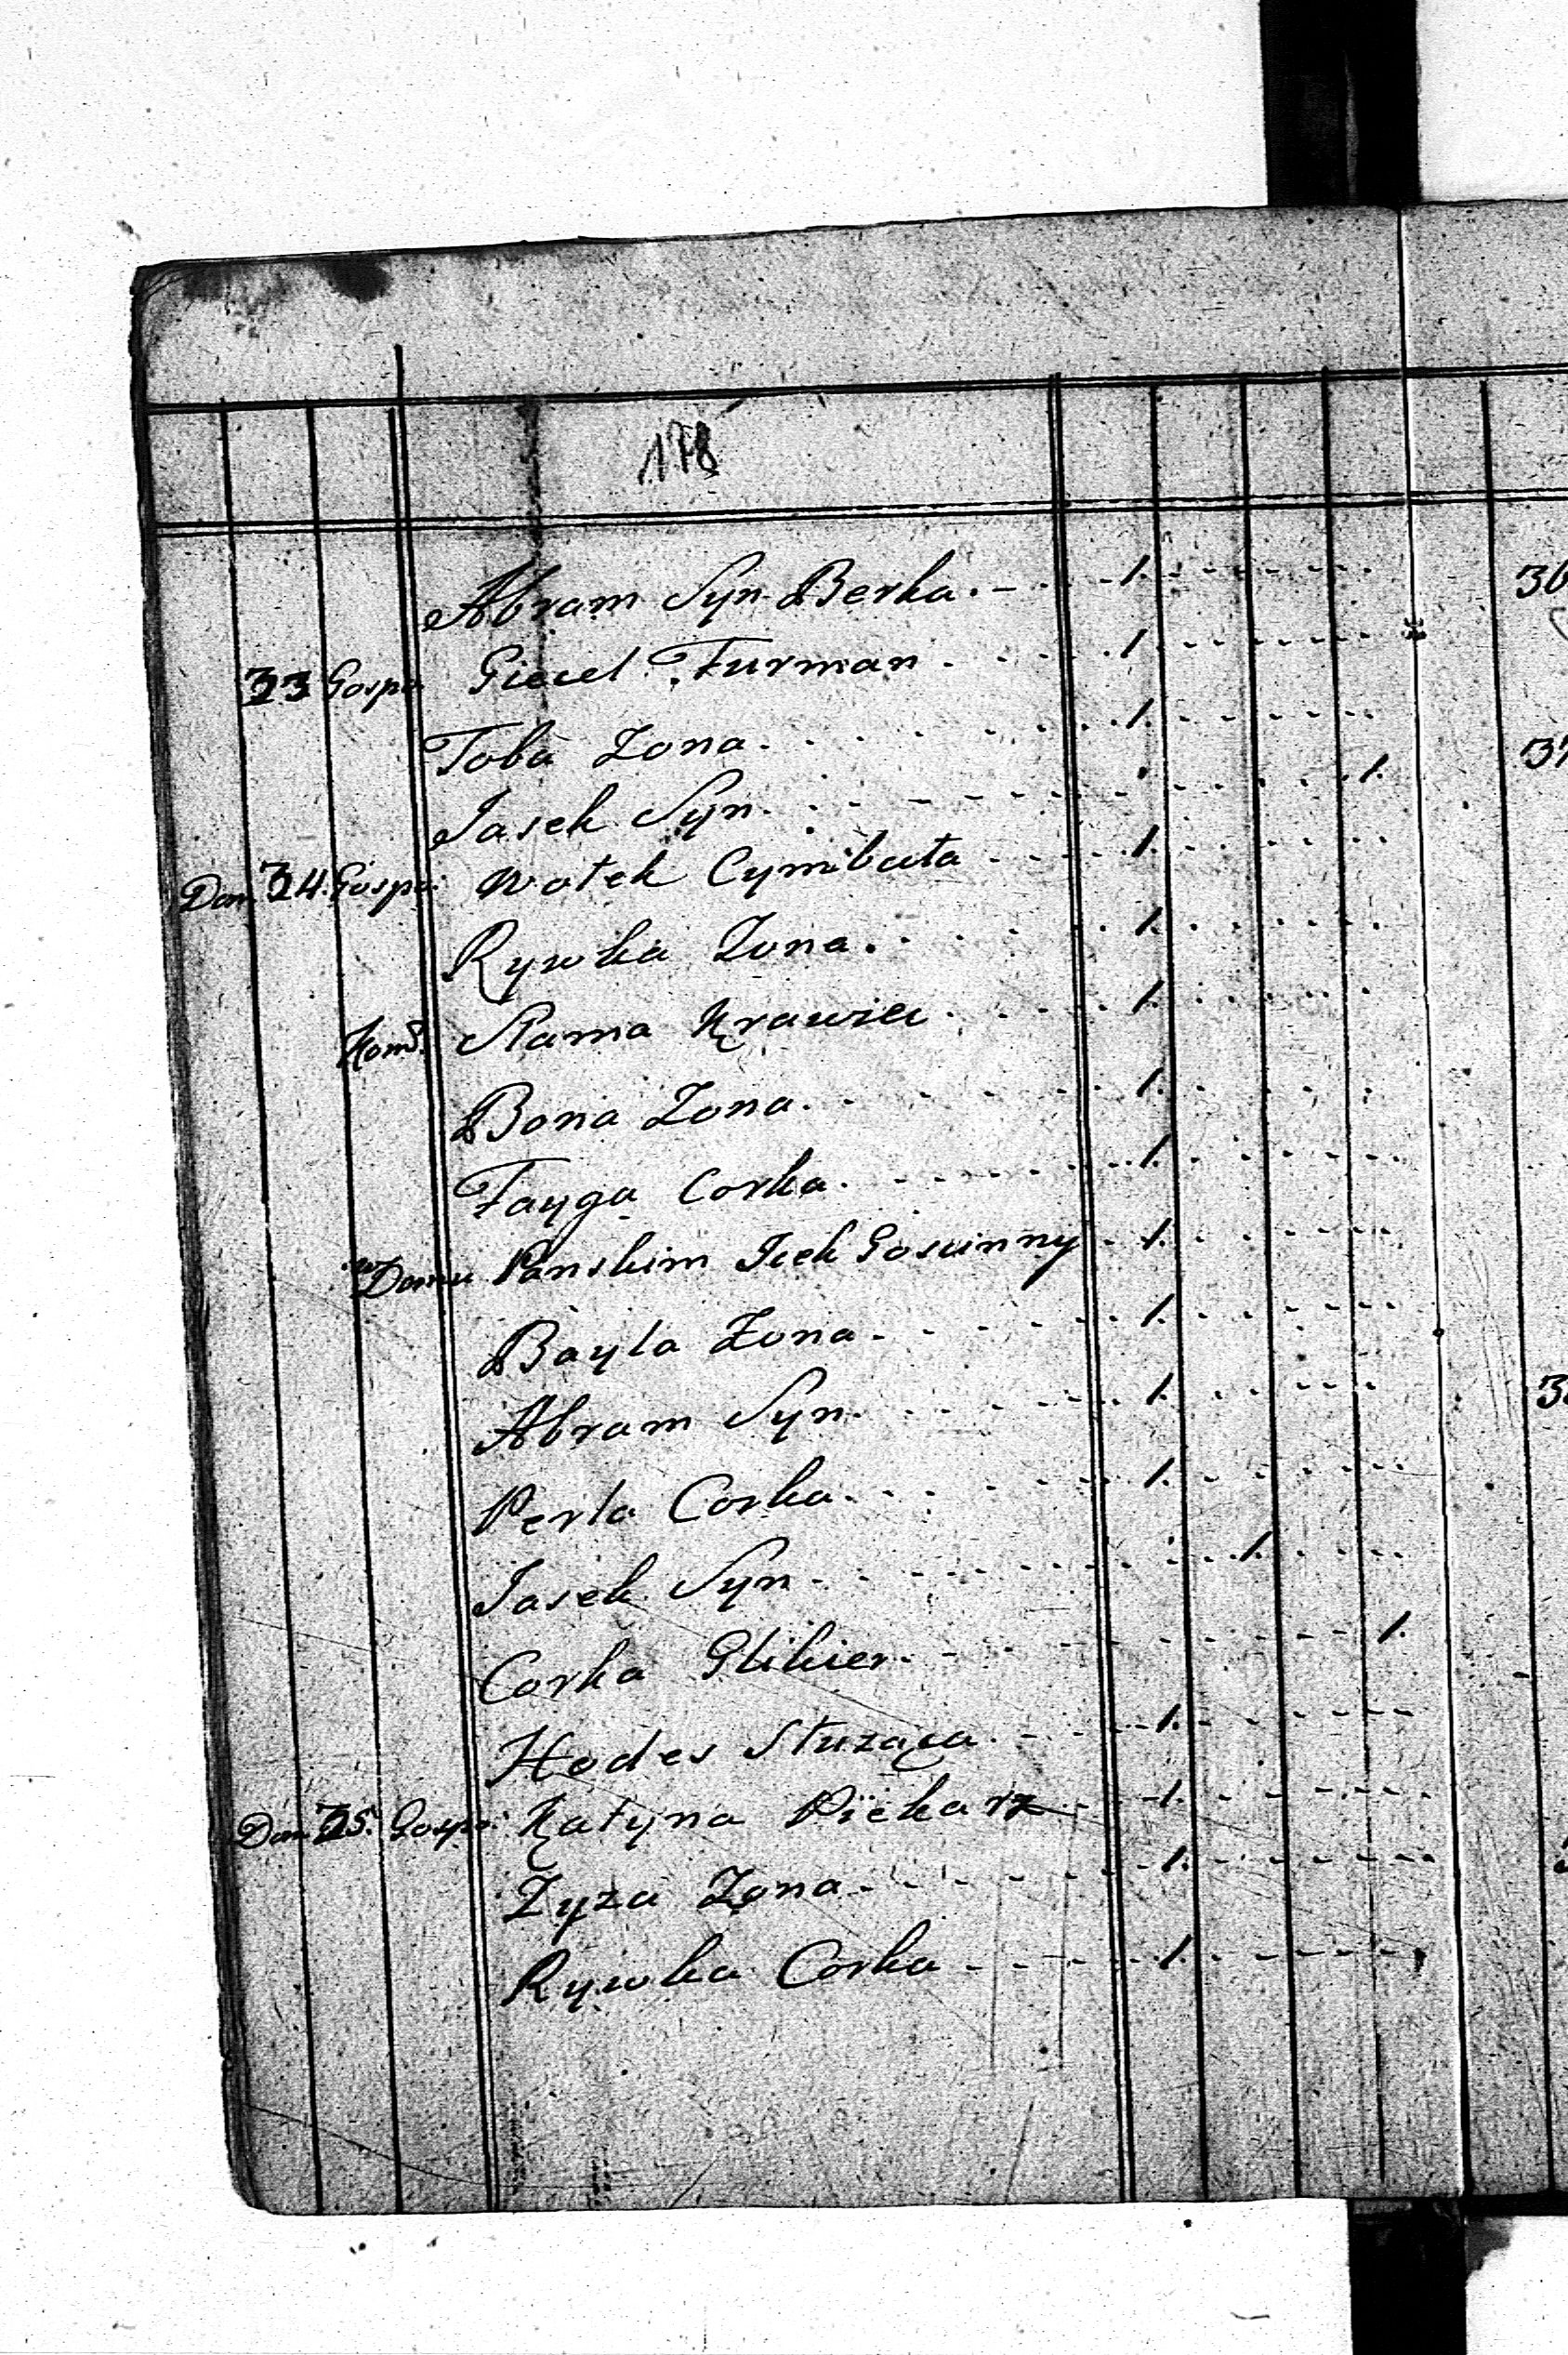 178
Abram Syn Berka. - . - 1. - - - - - -
33 Gospo. Giecel Furman . . . 1. - - - - - -
Toba Zona . . . . . 1. - - - - - -
Jasek Syn . . - - - - - . . . 1.
Dom 34. Gospo: Wołek Cymbała . . . 1. . . . . .
Rywka Zona . . . . . 1. . . . . .
Kom. Slama Krawiec . . . . 1. . . . . .
Bona Zona . . . . . 1. . . . . .
Fayga Corka . . . . . 1. . . . . .
w Domu Panskim Icek Goscinny . 1. - - - - -
Bayla Zona . . . . . 1. - - - - -
Abram Syn . . . . . 1. . . - - -
Perla Corka . . . . . 1. . - - - -
Jasek Syn . . - - - - . . 1. . - - -
Corka Glikier . - - - - - - - - 1.
Hodes Służąca . - - 1. - - - - -
Dom 35. Gospo: Katyna Piekarz . - 1. - - - - -
Zyza Zona . - - - - 1. - - - - -
Rywka Corka - - - - 1. - - - - -